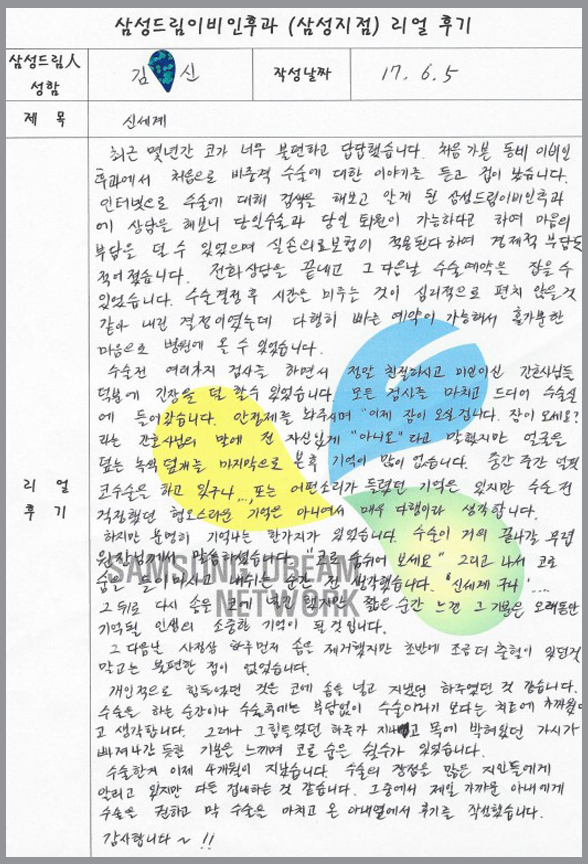 삼성드림이비인후과 (삼성지점) 리얼 후기
삼성드림人 성함
김 신
작성날짜
17. 6. 5
제 목
신세계
리 얼 후 기
최근 몇년간 코가 너무 불편하고 답답했습니다. 처음 가본 동네 이비인
후과에서 처음으로 비중격 수술에 대한 이야기를 듣고 겁이 났습니다.
인터넷으로 수술에 대해 검색을 해보고 알게 된 삼성드림이비인후과
에 상담을 해보니 당일수술과 당일 퇴원이 가능하다고 하여 마음의
부담을 덜 수 있었으며 실손의료보험이 적용된다 하여 경제적 부담도
적어졌습니다. 전화상담을 끝내고 그 다음날 수술예약을 잡을 수
있었습니다. 수술결정 후 시간을 미루는 것이 심리적으로 편치 않을것
같아 내린 결정이였는데 다행히 빠른 예약이 가능해서 홀가분한
마음으로 병원에 올 수 있었습니다.
수술전 여러가지 검사를 하면서 정말 친절하시고 미인이신 간호사님들
덕분에 긴장을 덜 할수 있었습니다. 모든 검사를 마치고 드디어 수술실
에 들어갔습니다. 안정제를 놔주시며 "이제 잠이 오실겁니다. 잠이 오세요?"
라는 간호사님의 말에 전 자신있게 "아니요" 라고 말했지만 얼굴을
덮는 녹색 덮개를 마지막으로 본후 기억이 많이 없습니다. 중간 중간
코수술을 하고 있구나... 또는 어떤소리가 들렸던 기억은 있지만 수술 전
걱정했던 혐오스러운 기억은 아니여서 매우 다행이라 생각합니다.
하지만 분명히 기억나는 한가지가 있었습니다. 수술이 거의 끝나갈 무렵
원장님께서 말씀하셨습니다. "코로 숨쉬어 보세요" 그리고 나서 코로
숨을 들이마시고 내쉬는 순간 전 생각했습니다. '신세계 구나'....
그 뒤로 다시 솜을 코에 넣긴 했지만 짧은 순간 느낀 그 기분은 오래동안
기억될 인생의 소중한 기억이 될 것입니다.
그 다음날 사정상 하루먼저 솜은 제거했지만 초반에 조금 더 출혈이 있던것
말고는 불편한 점이 없었습니다.
개인적으로 힘들었던 것은 코에 솜을 넣고 지냈던 하루였던 것 같습니다.
수술을 하는 순간이나 수술후에는 부담없이 수술이라기 보다는 치료에 가까웠다
고 생각합니다. 그러나 그 힘들었던 하루가 지나고 목에 박혀있던 가시가
빠져나간 듯한 기분을 느끼며 코로 숨을 쉴수가 있었습니다.
수술한지 이제 4개월이 지났습니다. 수술의 장점을 많은 지인들에게
알리고 있지만 다들 겁내하는 것 같습니다. 그중에서 제일 가까운 아내에게
수술을 권하고 막 수술을 마치고 온 아내옆에서 후기를 작성했습니다.
감사합니다 ~ !!
SAMSUNG DREAM
NETWORK